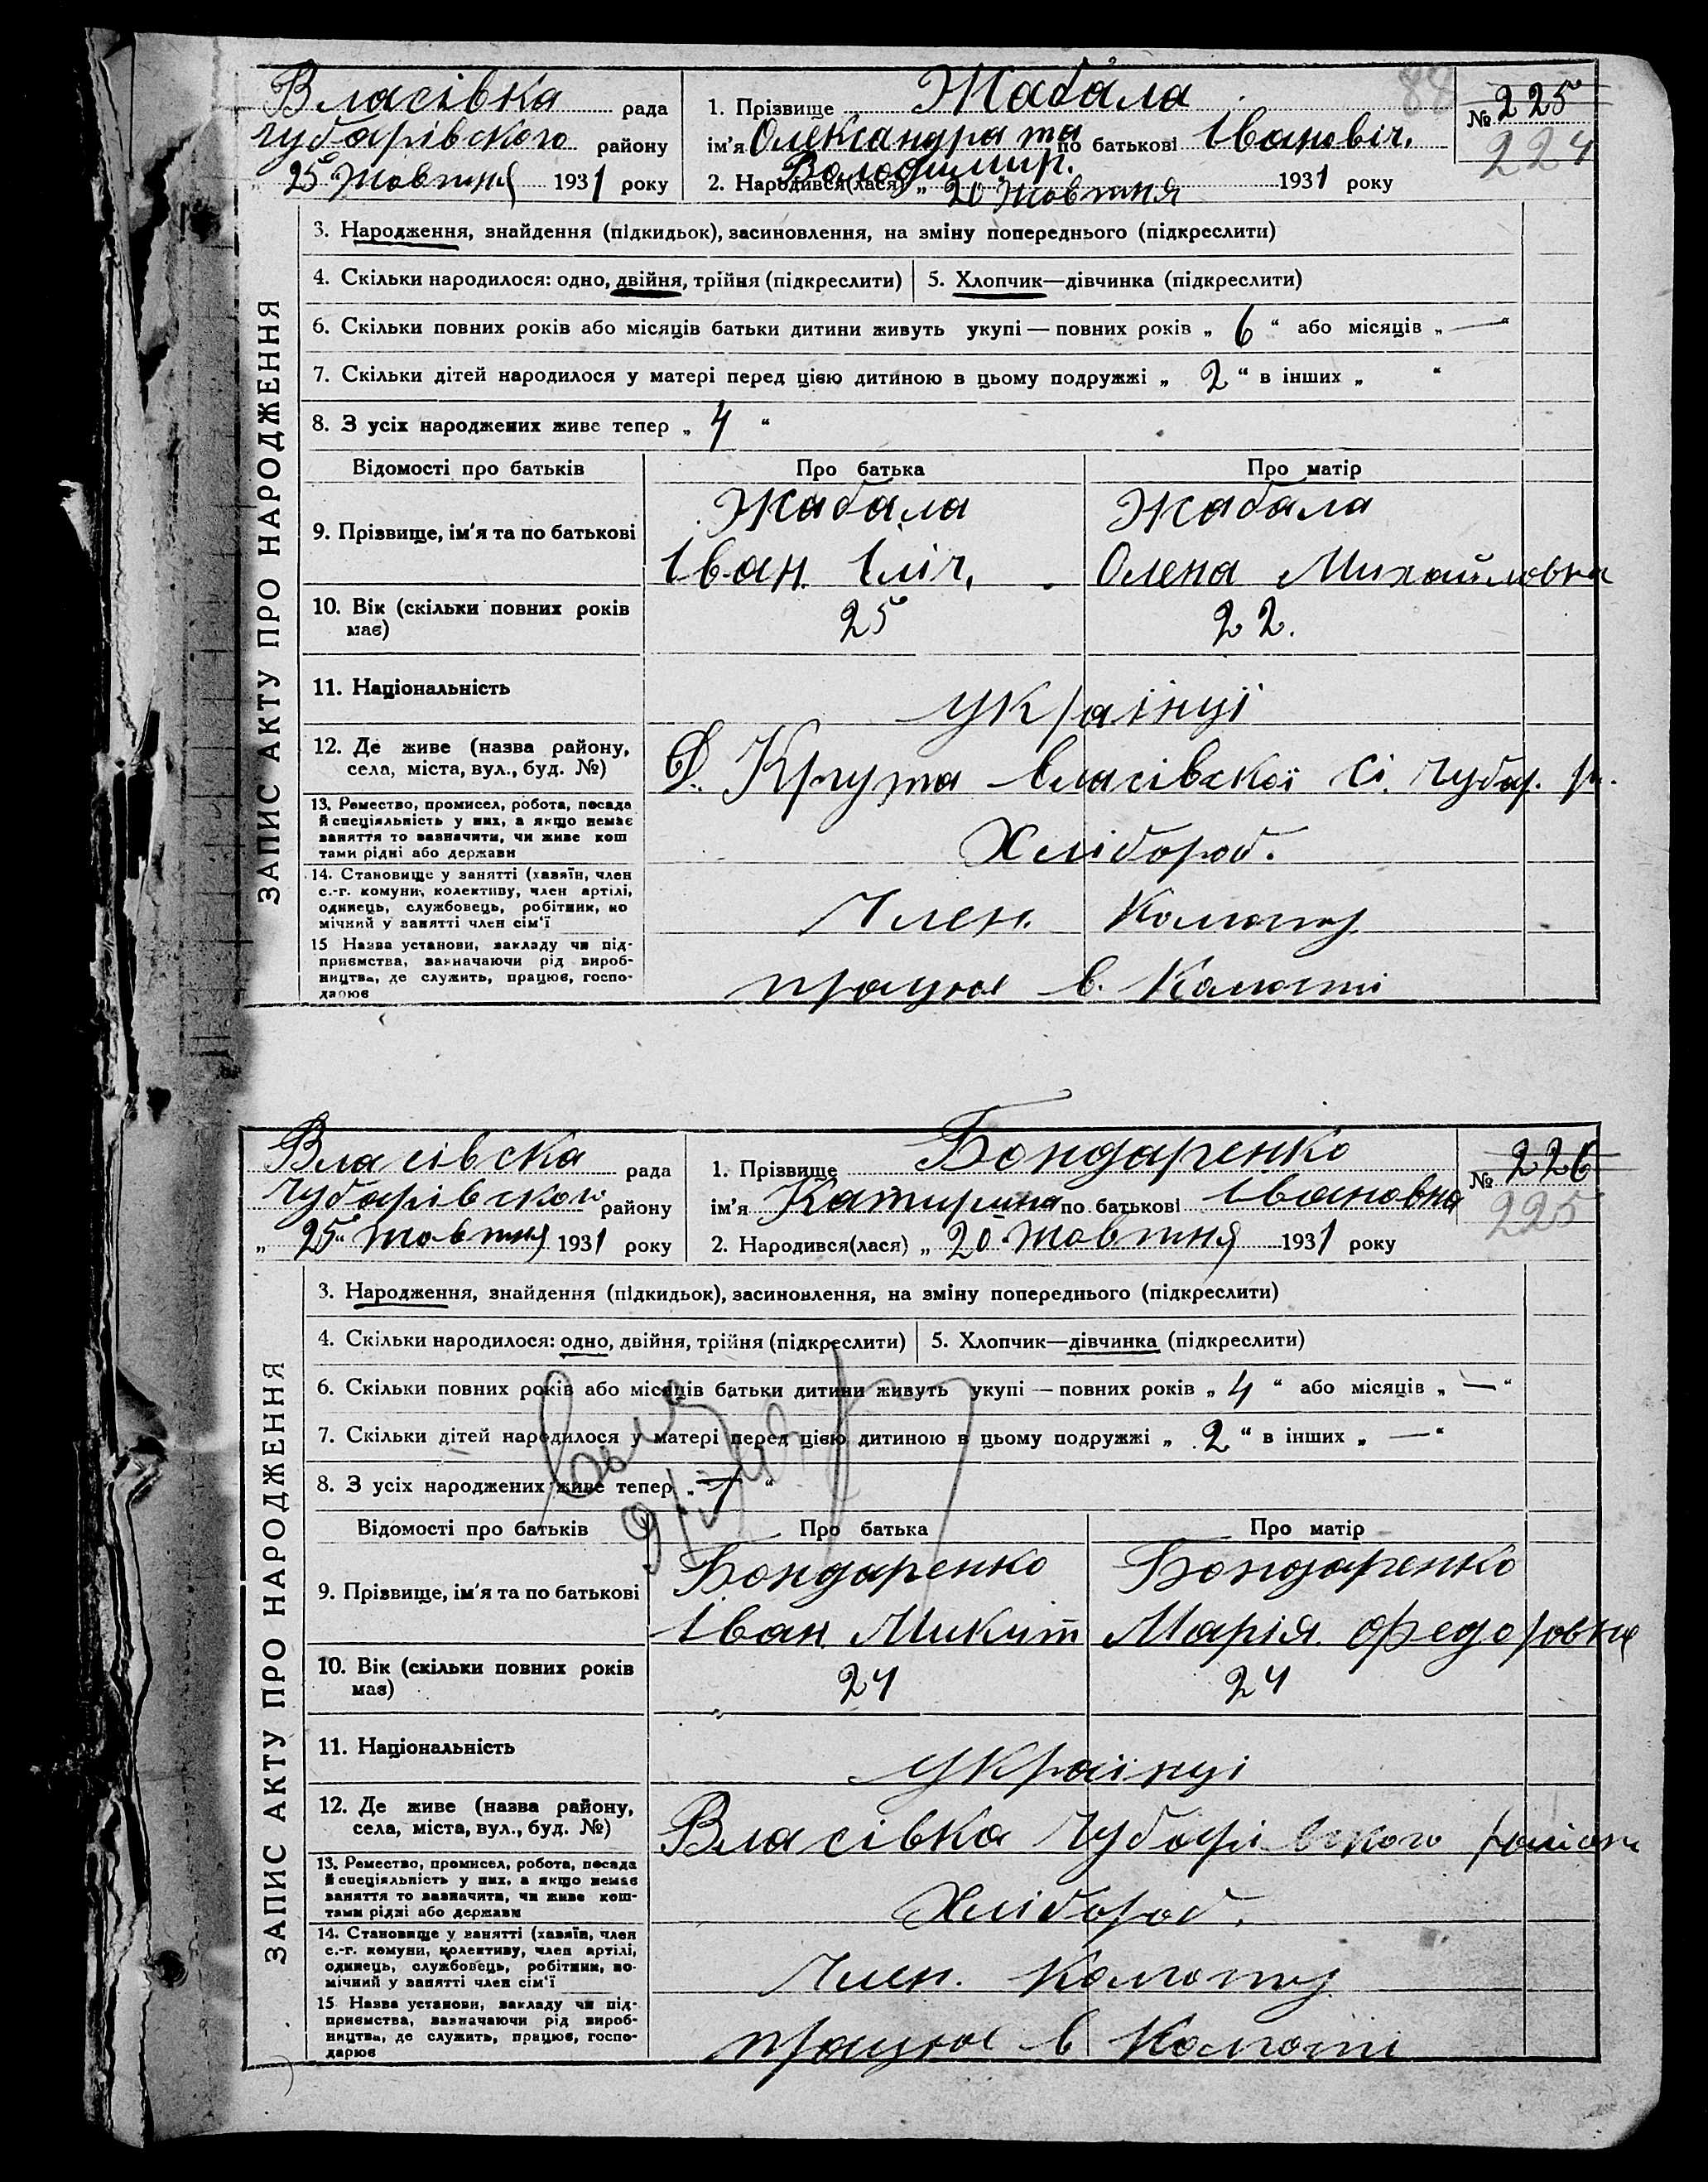 Власівка рада
Чубарівського району
„ 25 " Жовтня 1931 року
1. Прізвище Жабала
ім'я Олександра та по батькові Івановіч.
Володимир.
2. Народився(лася) „ 20 Жовтня 1931 року
88
№ 225
224
ЗАПИС АКТУ ПРО НАРОДЖЕННЯ
3. Народження, знайдення (підкидьок), засиновлення, на зміну попереднього (підкреслити)
4. Скільки народилося: одно, двійня, трійня (підкреслити) 5. Хлопчик—дівчинка (підкреслити)
6. Скільки повних років або місяців батьки дитини живуть укупі — повних років „ 6 “ або місяців „ — “
7. Скільки дітей народилося у матері перед цією дитиною в цьому подружжі „ 2 “ в інших „ “
8. З усіх народжених живе тепер „ 4 “
Відомості про батьків Про батька Про матір
9. Прізвище, ім'я та по батькові
Жабала Жабала
Іван Іліч. Олена Михайловна
10. Вік (скільки повних років
має)
25 22.
11. Національність
українці
12. Де живе (назва району,
села, міста, вул., буд. №)
Д. Крута Власівської сі. Чубар. р.
13. Ремество, промисел, робота, посада
й спеціяльність у них, а якщо немає
заняття то зазначити, чи живе кош
тами рідні або держави
Хлібороб.
14. Становище у занятті (хазяїн, член
с.-г. комуни, колективу, член артілі,
одинець, службовець, робітник, по
мічний у занятті член сім'ї
Член. Колгоспу
15 Назва установи, закладу чи під-
приємства, зазначаючи рід вироб-
ництва, де служить, працює, госпо-
дарює
працює в.
Власівска рада
Чубарівського району
„ 25 “ Жовтня 1931 року
1. Прізвище Бондаренко
ім'я Катирина по батькові Івановна
2. Народився(лася) „ 20 Жовтня 1931 року
№ 226
225
ЗАПИС АКТУ ПРО НАРОДЖЕННЯ
3. Народження, знайдення (підкидьок), засиновлення, на зміну попереднього (підкреслити)
4. Скільки народилося: одно, двійня, трійня (підкреслити) 5. Хлопчик—дівчинка (підкреслити)
6. Скільки повних років або місяців батьки дитини живуть укупі — повних років „ 4 “ або місяців „ — “
7. Скільки дітей народилося у матері перед цією дитиною в цьому подружжі „ 2 “ в інших „ — “
8. З усіх народжених живе тепер „ “
Відомості про батьків Про батька Про матір
9. Прізвище, ім'я та по батькові
Бондаренко Бондаренко
Іван Микит Марія Федоровна
10. Вік (скільки повних років
має)
24 24
11. Національність
українці
12. Де живе (назва району,
села, міста, вул., буд. №)
Власівка Чубарівського району
13. Ремество, промисел, робота, посада
й спеціяльність у них, а якщо немає
заняття то зазначити, чи живе кош-
тами рідні або держави
Хлібороб.
14. Становище у занятті (хазяїн, член
с.-г. комуни, колективу, член артілі,
одинець, службовець, робітник, по-
мічний у занятті член сім'ї
Член. Колгоспу
15 Назва установи, закладу чи під-
приємства, зазначаючи рід вироб-
ництва, де служить, працює, госпо-
дарює
працює в